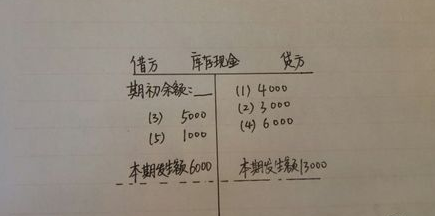 借方 库存现金 贷方
期初余额:__ (1) 4000
(2) 3000
(3) 5000 (4) 6000
(5) 1000
本期发生额6000 本期发生额13000